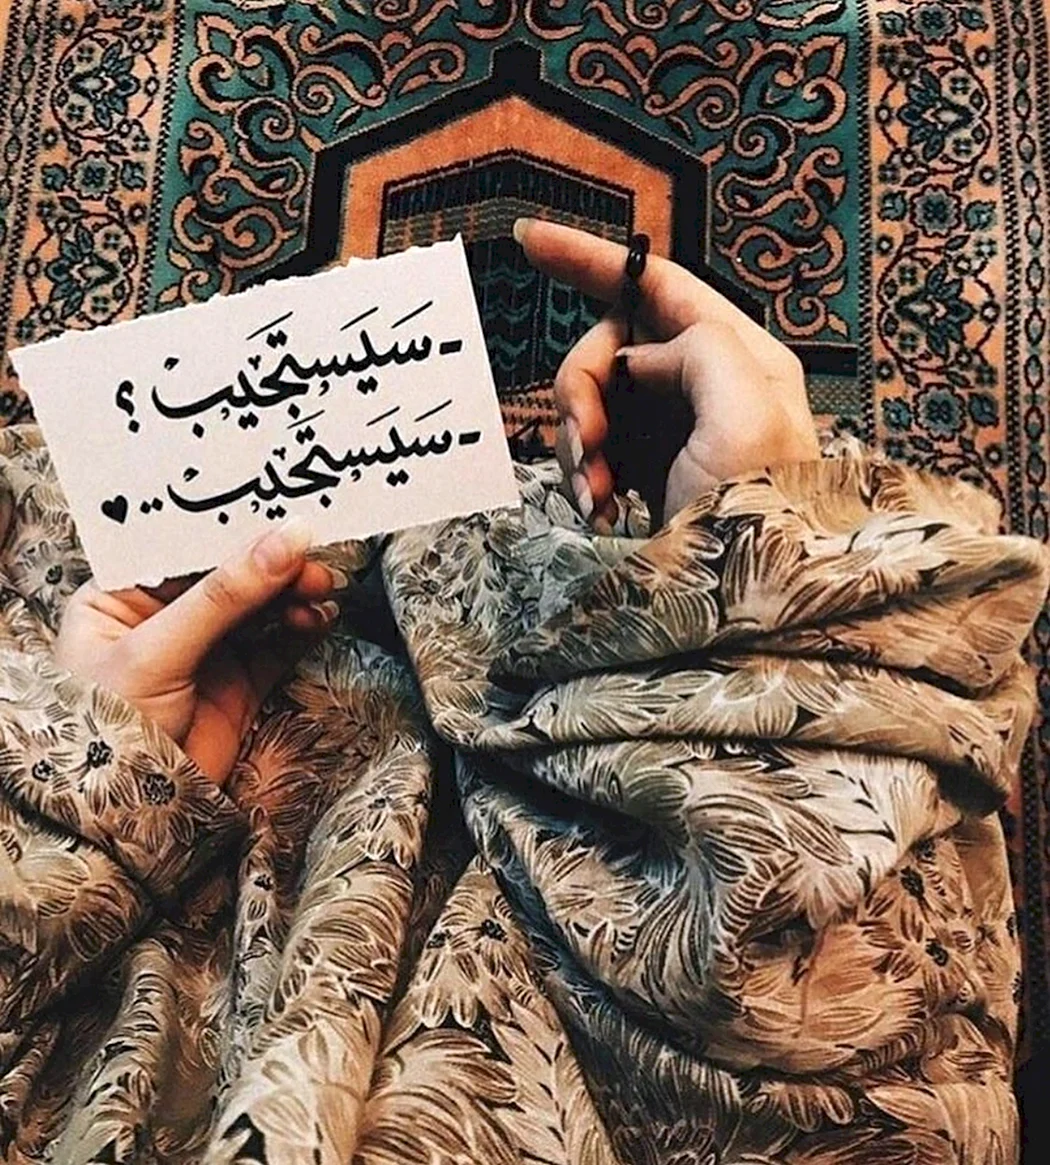 - سَيَستَجيبْ ؟
- سَيَستَجيبْ.. ♥